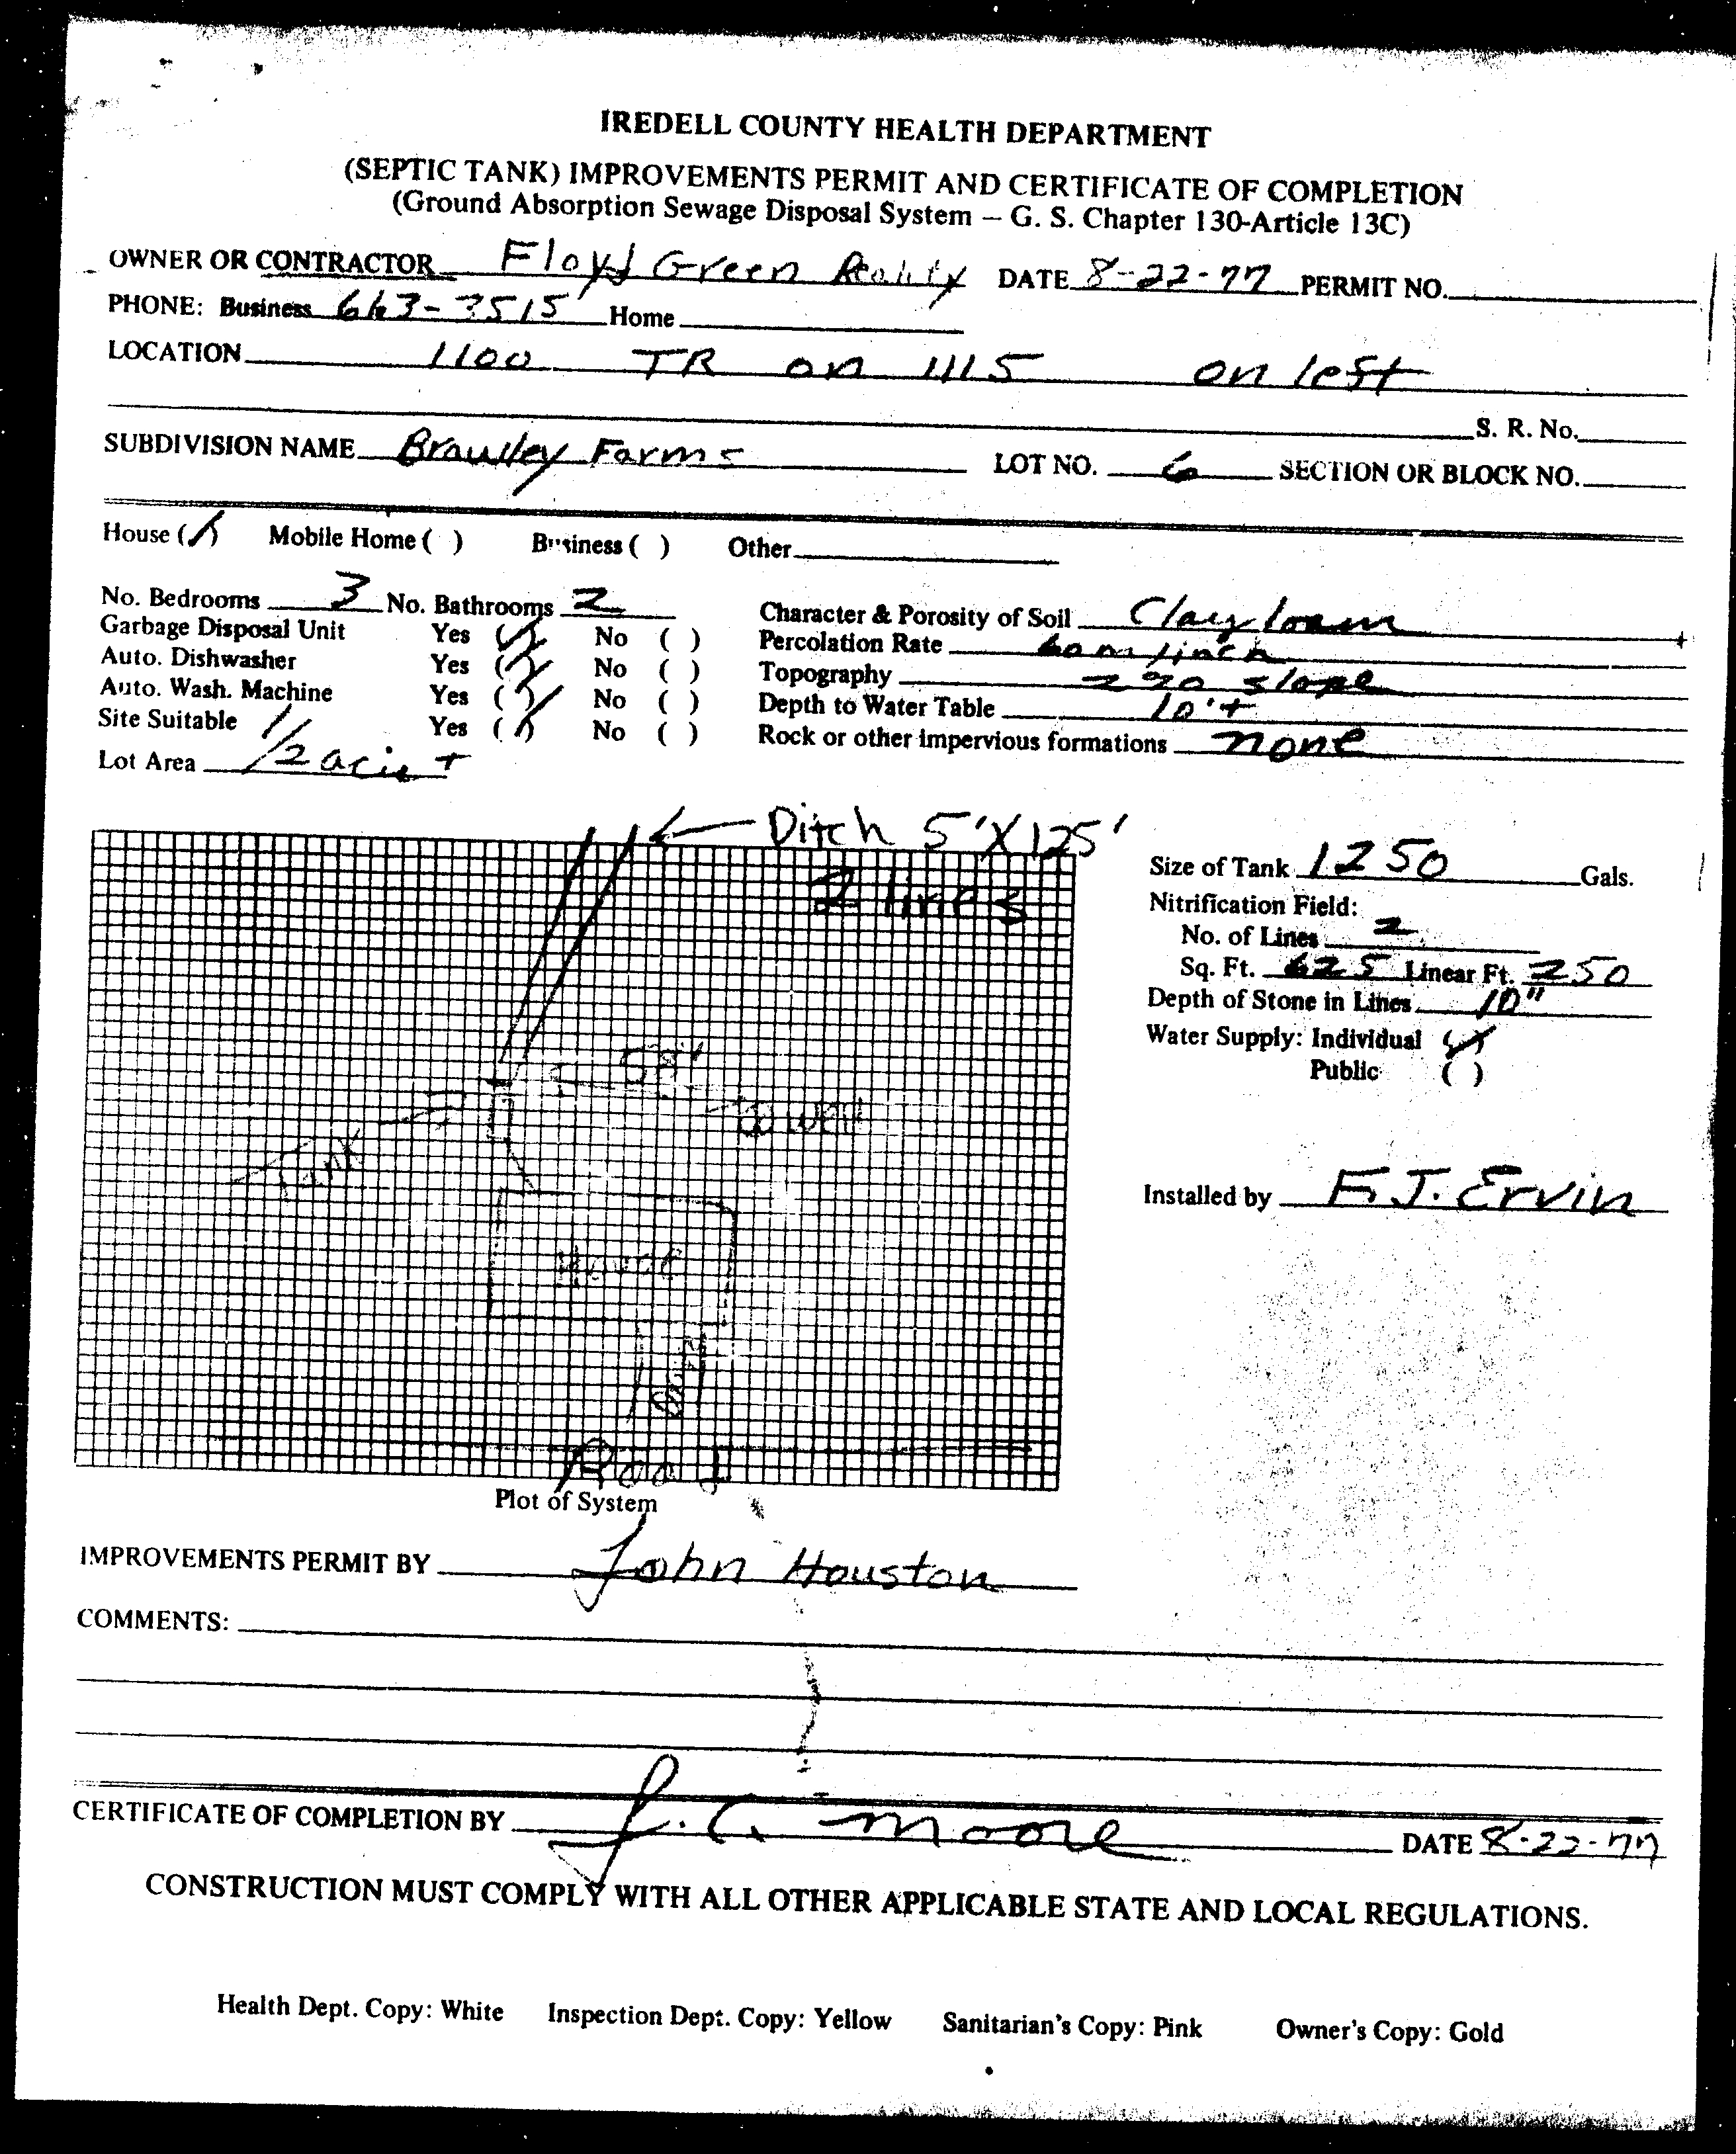 IREDELL COUNTY HEALTH DEPARTMENT
(SEPTIC TANK) IMPROVEMENTS PERMIT AND CERTIFICATE OF COMPLETION
(Ground Absorption Sewage Disposal System — G. S. Chapter 130-Article 13C)
OWNER OR CONTRACTOR Floyd Green Realty DATE 8-22-77 PERMIT NO.
PHONE: Business 663-3515 Home
LOCATION 1100 TR on 1115 on left
S. R. No.
SUBDIVISION NAME Brawley Farms LOT NO. 6 SECTION OR BLOCK NO.
House (/) Mobile Home ( ) Business ( ) Other
No. Bedrooms 3 No. Bathrooms 2
Garbage Disposal Unit Yes (✓) No ( )
Auto. Dishwasher Yes (✓) No ( )
Auto. Wash. Machine Yes (✓) No ( )
Site Suitable Yes (✓) No ( )
Lot Area 1/2 acre +
Character & Porosity of Soil Clay loam
Percolation Rate 60 m/inch
Topography 2% slope
Depth to Water Table 10'+
Rock or other impervious formations none
Ditch 5'X125'
2 lines
58'
to well
Tank
House
Drive
Road
Plot of System
Size of Tank 1250 Gals.
Nitrification Field:
No. of Lines 2
Sq. Ft. 625 Linear Ft. 250
Depth of Stone in Lines 10"
Water Supply: Individual (✓)
Public ( )
Installed by F.J. Ervin
IMPROVEMENTS PERMIT BY John Houston
COMMENTS:
CERTIFICATE OF COMPLETION BY J. C. Moore DATE 8-22-77
CONSTRUCTION MUST COMPLY WITH ALL OTHER APPLICABLE STATE AND LOCAL REGULATIONS.
Health Dept. Copy: White Inspection Dept. Copy: Yellow Sanitarian's Copy: Pink Owner's Copy: Gold